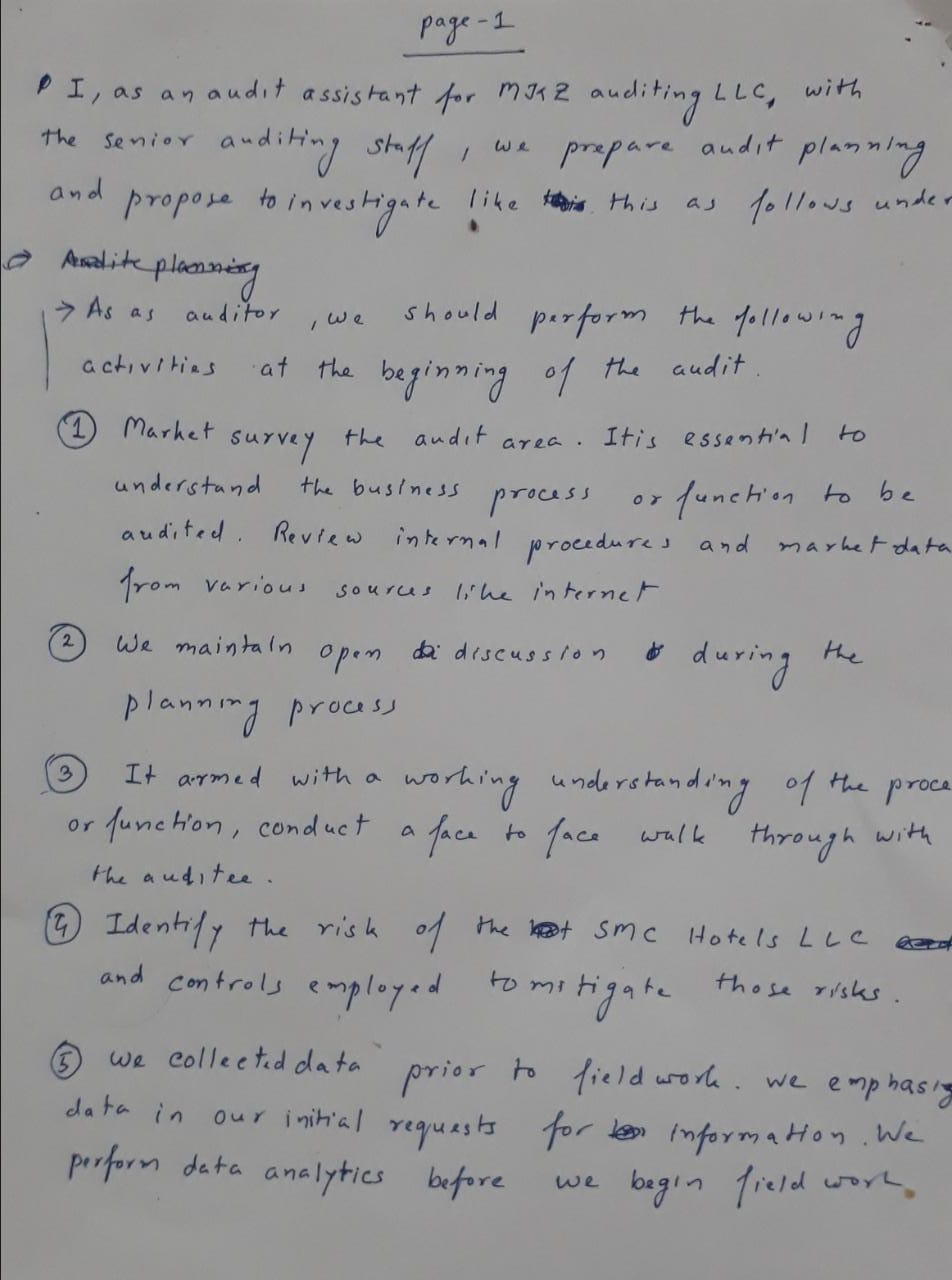 page-1
I, as an audit assistant for MJKZ auditing LLC, with
the senior auditing staff, we prepare audit planning
and propose to investigate like this as follows under
Audite planning
→ As as auditor, we should perform the following
activities at the beginning of the audit.
① Market survey the audit area. It is essential to
understand the business process or function to be
audited. Review internal procedures and market data
from various sources like internet
② We maintain open discussion during the
planning process
③ It armed with a working understanding of the proce
or function, conduct a face to face walk through with
the auditee.
④ Identify the risk of the SMC Hotels LLC
and controls employed to mitigate those risks.
⑤ we collected data prior to field work. we emphasig
data in our initial requests for information. We
perform data analytics before we begin field work.